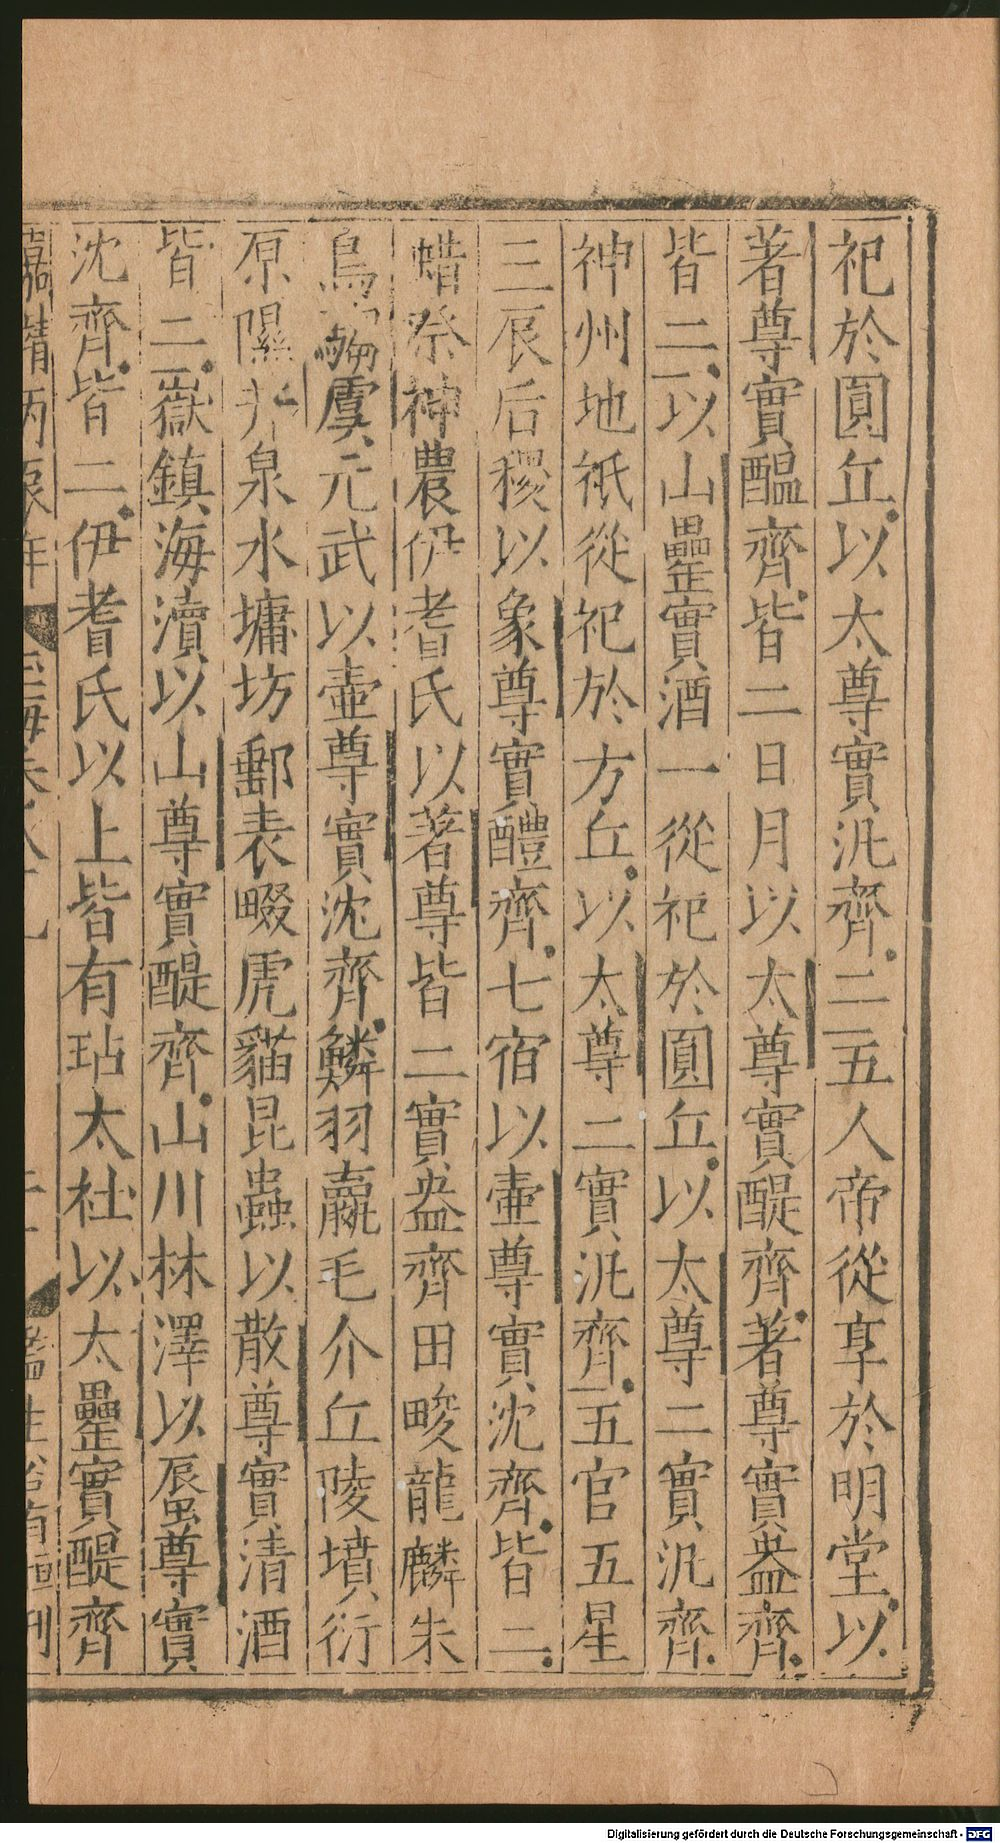 祀於圓丘以太尊實汎齊二五人帝從享於明堂以
著尊實醖齊皆二日月以太尊實醍齊著尊實盎齊
皆二以山罍實酒一從祀於圓丘以太尊二實汎齊
神州地祇從祀於方丘以太尊二實汎齊五官五星
三辰后稷以象尊實醴齊七宿以壷尊實沈齊皆二
蜡祭神農伊耆氏以著尊皆二實盎齊田畯龍麟朱
鳥騶虞元武以壷尊實沈齊鱗羽臝毛介丘陵墳衍
原隰井泉水墉坊郵表畷虎貓昆蟲以散尊實清酒
皆二嶽鎮海瀆以山尊實醍齊山川林澤以蜃尊實
沈齊皆二伊耆氏以上皆有坫太社以太罍實醍齊
嘉靖丙辰年 玉海卷八十九 監生 有恒刊
Digitalisierung gefördert durch die Deutsche Forschungsgemeinschaft - DFG